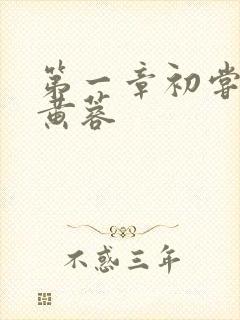 第一章初尝
黄蓉
不惑三年